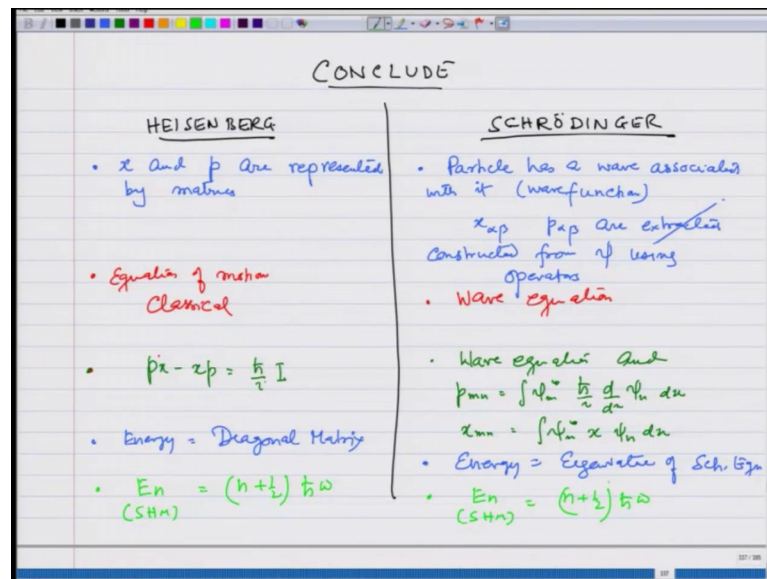 CONCLUDE
HEISENBERG
• x and p are represented
by matrices
• Equation of motion
Classical
• px - xp = ħ/i I
• Energy = Diagonal Matrix
• En = (n+1/2) ħω
(SHM)
SCHRÖDINGER
• Particle has a wave associated
with it (wavefunction)
xαβ pαβ are extracted
constructed from ψ using
operators
• Wave equation
• Wave equation and
pmn = ∫ψm* ħ/i d/dx ψn dx
xmn = ∫ψm* x ψn dx
• Energy = Eigenvalue of Sch. Eqn
• En = (n+1/2) ħω
(SHM)
337 / 385
337